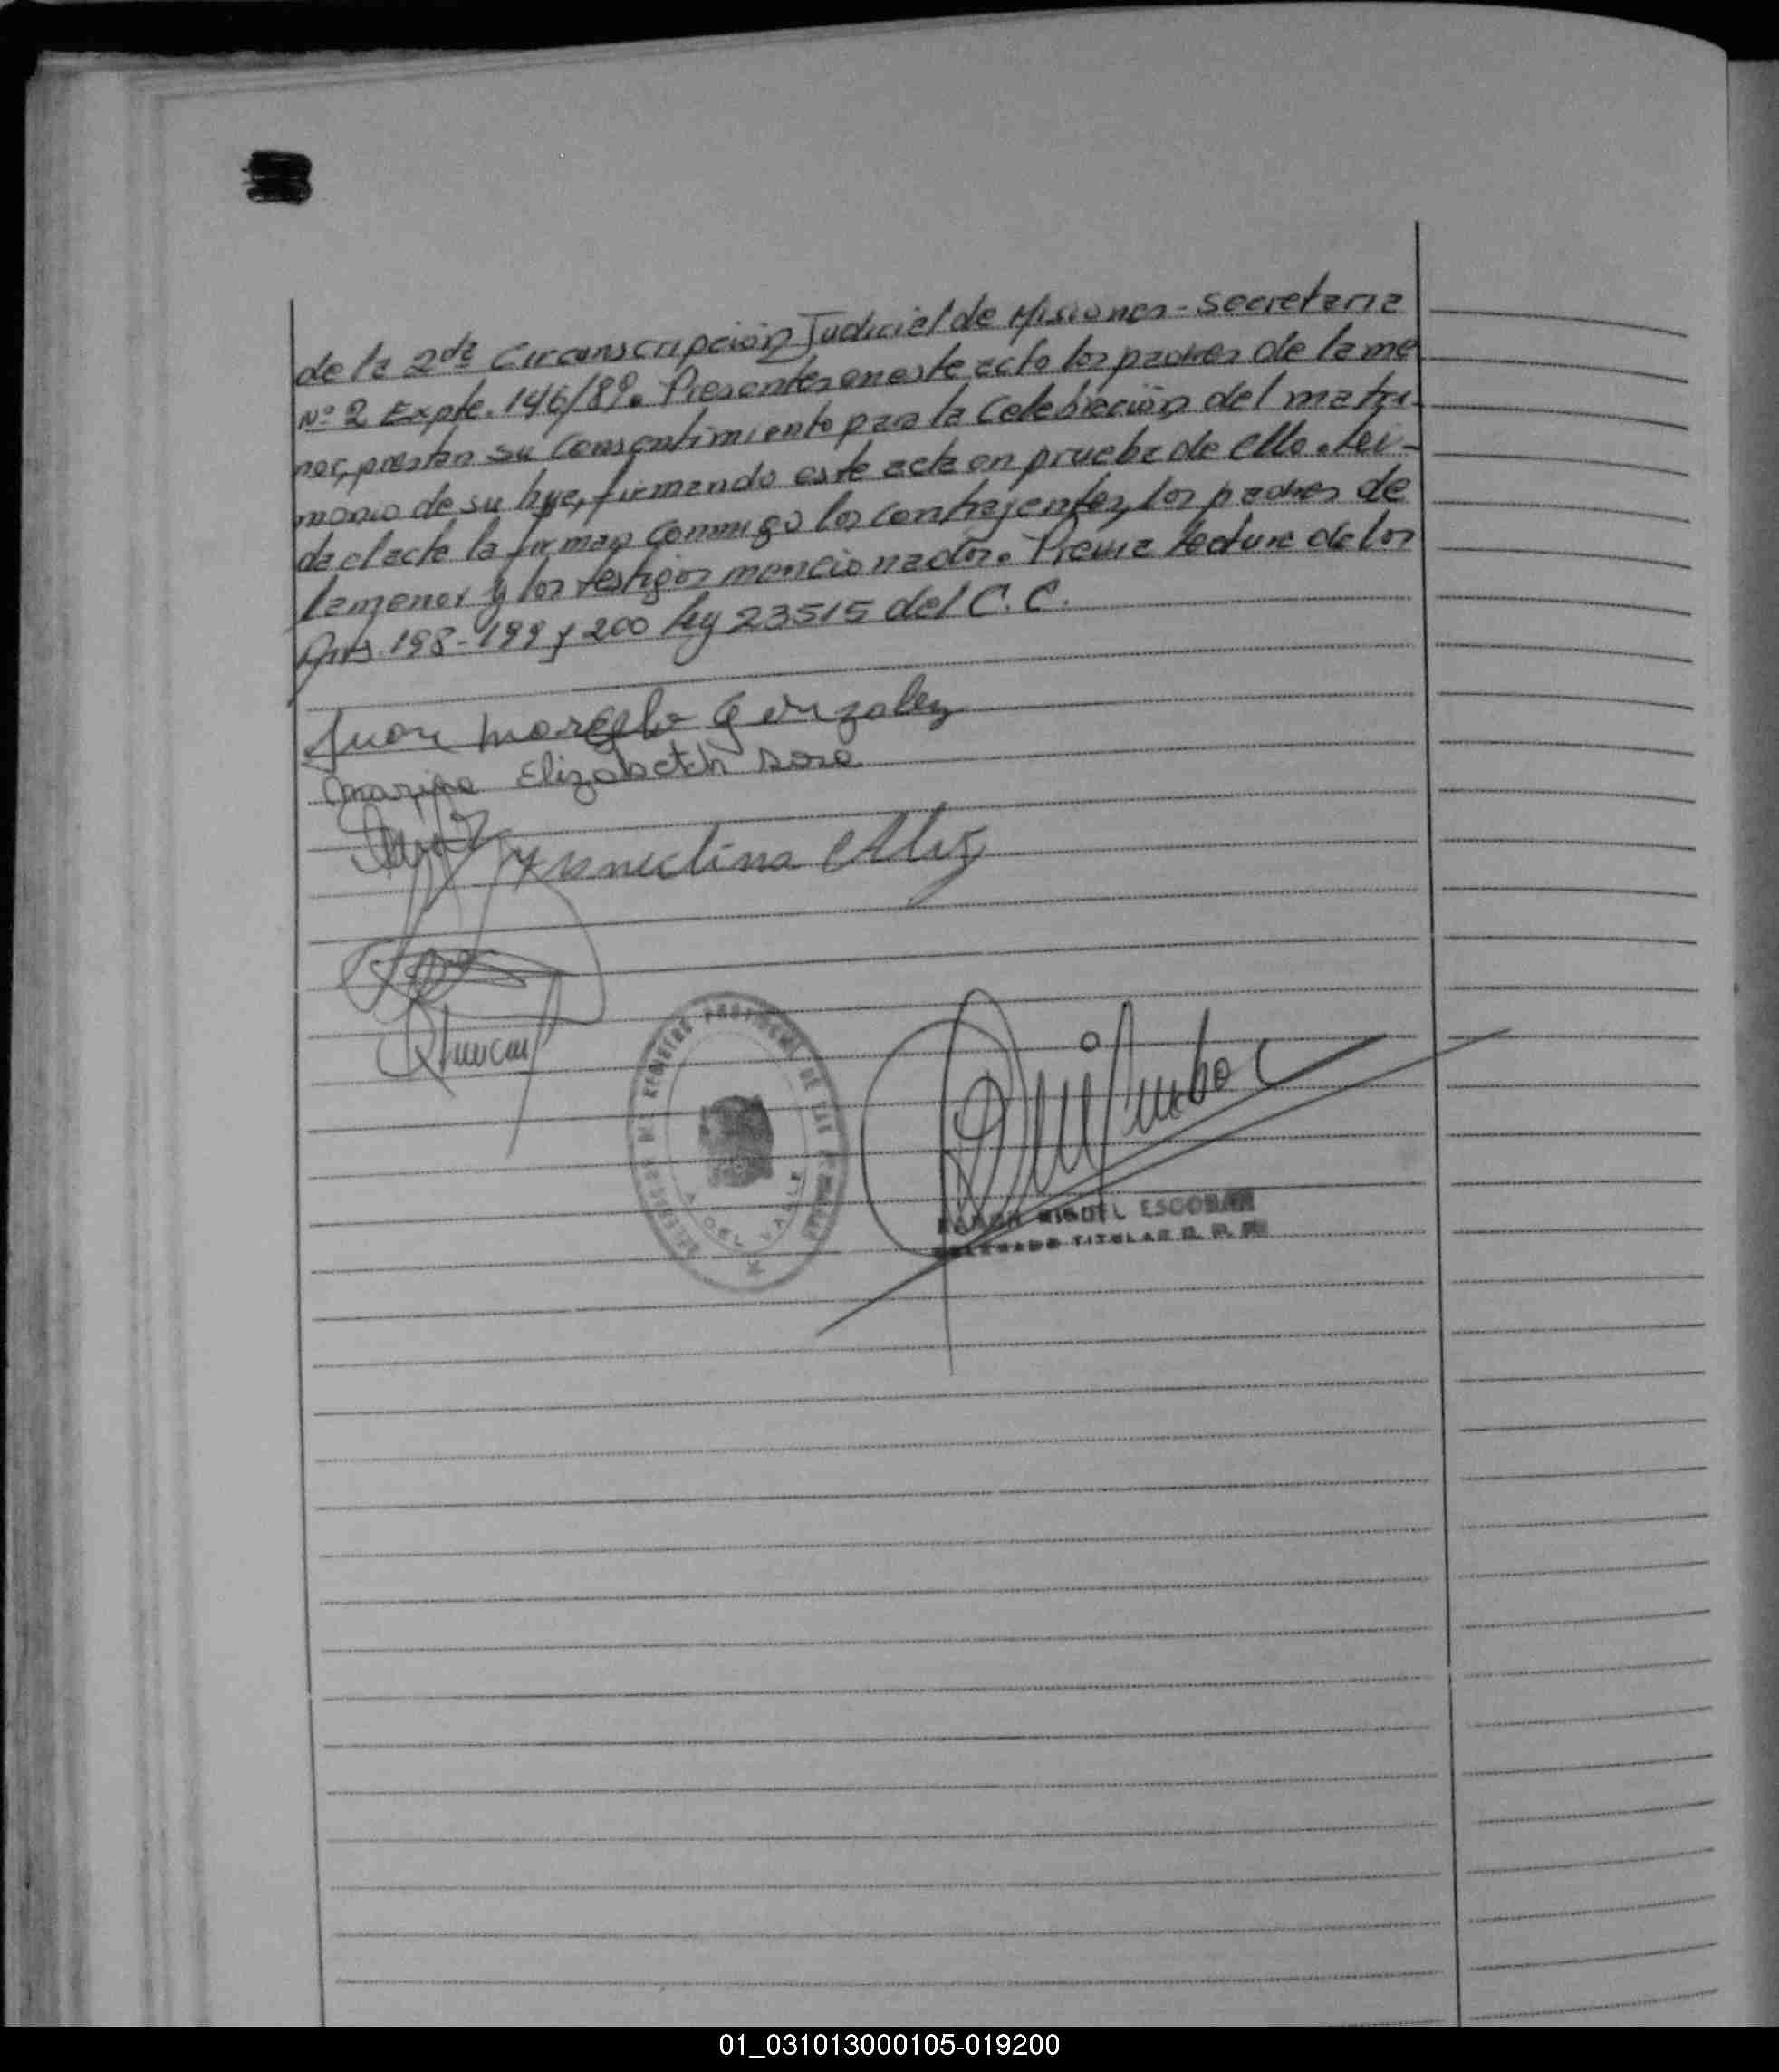 de la 2da Circunscripción Judicial de Misiones - Secretaria
Nº 2 Expte. 146/89. Presentes en este acto los padres de la me
nor, prestan su consentimiento para la celebración del matri-
monio de su hija, firmando este acta en prueba de ello. Lei-
da el acta la firman conmigo los contrayentes, los padres de
la menor y los testigos mencionados. Previa lectura de los
Arts. 198-199 y 200 ley 23515 del C. C.
Juan Marcelo Gonzalez
Elizabeth Sosa
REGISTRO PROVINCIAL DE LAS PERSONAS
RAMON MIGUEL ESCOBAR
DELEGADO TITULAR R. P. P.
01_031013000105-019200